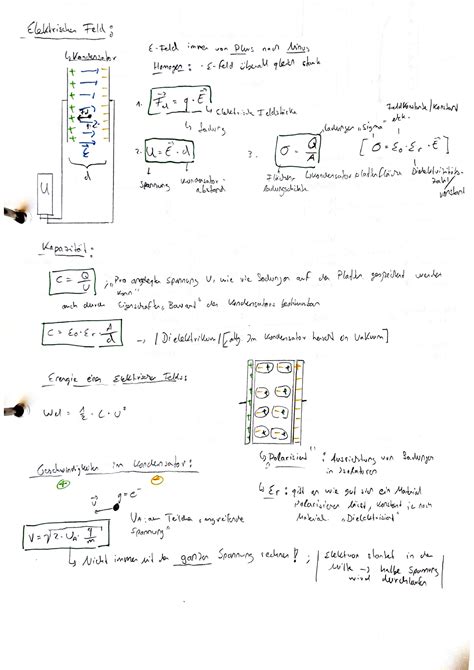 Elektrisches Feld:
↳ Kondensator
E-Feld immer von Plus nach Minus
Homogen: E-Feld überall gleich stark
1. F_el = q · E
↳ Elektrische Feldstärke
↳ Ladung
2. U = E · d
Spannung
Kondensator-
abstand
3. σ = Q/A
"Sigma"
Flächen-
ladungsdichte
Kondensatorplattenfläche
Feldkonstante / Konstant
[σ = ε₀ · ε_r · E]
Dielektrizitäts-
zahl /
konstant
d
U
Kapazität:
C = Q/U
"Pro angelegter Spannung U, wie viele Ladungen auf den Platten gespeichert werden
kann"
auch durch Eigenschaften "Bauart" des Kondensators bestimmbar
C = ε₀ · ε_r · A/d
→ / Dielektrikum / [allg. im Kondensator herrscht ein Vakuum]
Energie eines Elektrischen Feldes
Wel = 1/2 · C · U²
↳ "Polarisiert": Ausrichtung von Ladungen
in Isolatoren
↳ ε_r: gibt an wie gut sich ein Material
Polarisieren lässt, konstant je nach
Material
Geschwindigkeiten im Kondensator:
q = e⁻
v
U_A: am Teilchen "angreifende
Spannung"
V = √(2 · U_A · q/m)
↳ Nicht immer mit der ganzen Spannung rechnen!
Elektron startet in der
Mitte → halbe Spannung
wird durchlaufen